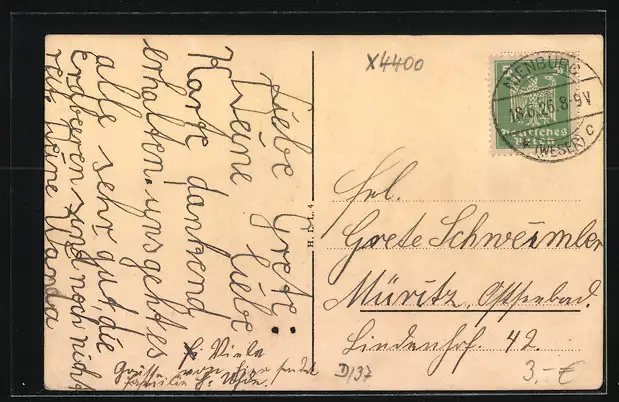 Liebe Grete:
Deine liebe
Karte dankend
erhalten. uns geht es
alle sehr gut die
Erdbeeren sind noch nicht
reif deine Wanda
Viele
Grüsse von hier sendet
Familie H.
H. D. L. 4
X4400
NIENBURG
18.6.26.8-9V
* (WESER) c
5
Deutsches
Reich
Frl.
Grete Schweimler
Müritz, Ostseebad
Lindenhof. 42.
D/37
3,-€